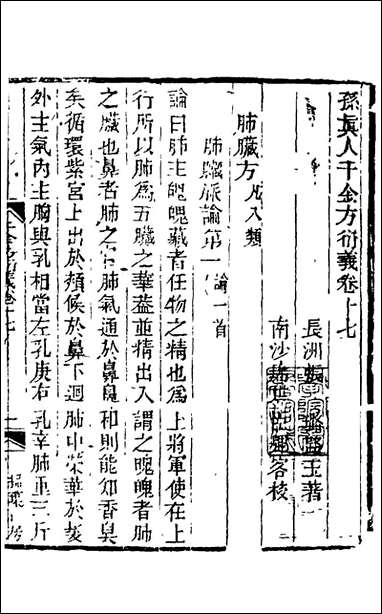 孫真人千金方衍義卷十七
長洲張璐路玉著
南沙席世臣鄰客校
肺臟方 凡八類
肺臟脉論第一 論一首
論曰肺主魄魄藏者任物之精也爲上將軍使在上
行所以肺爲五臟之華葢並精出入謂之魄魄者肺
之臟也鼻者肺之官肺氣通於鼻鼻和則能知香臭
矣循環紫宮上出於頰候於鼻下迴肺中榮華於髮
外主氣內主胸與乳相當左乳庚右乳辛肺重三斤
千金方衍義卷十七
一
掃葉山房